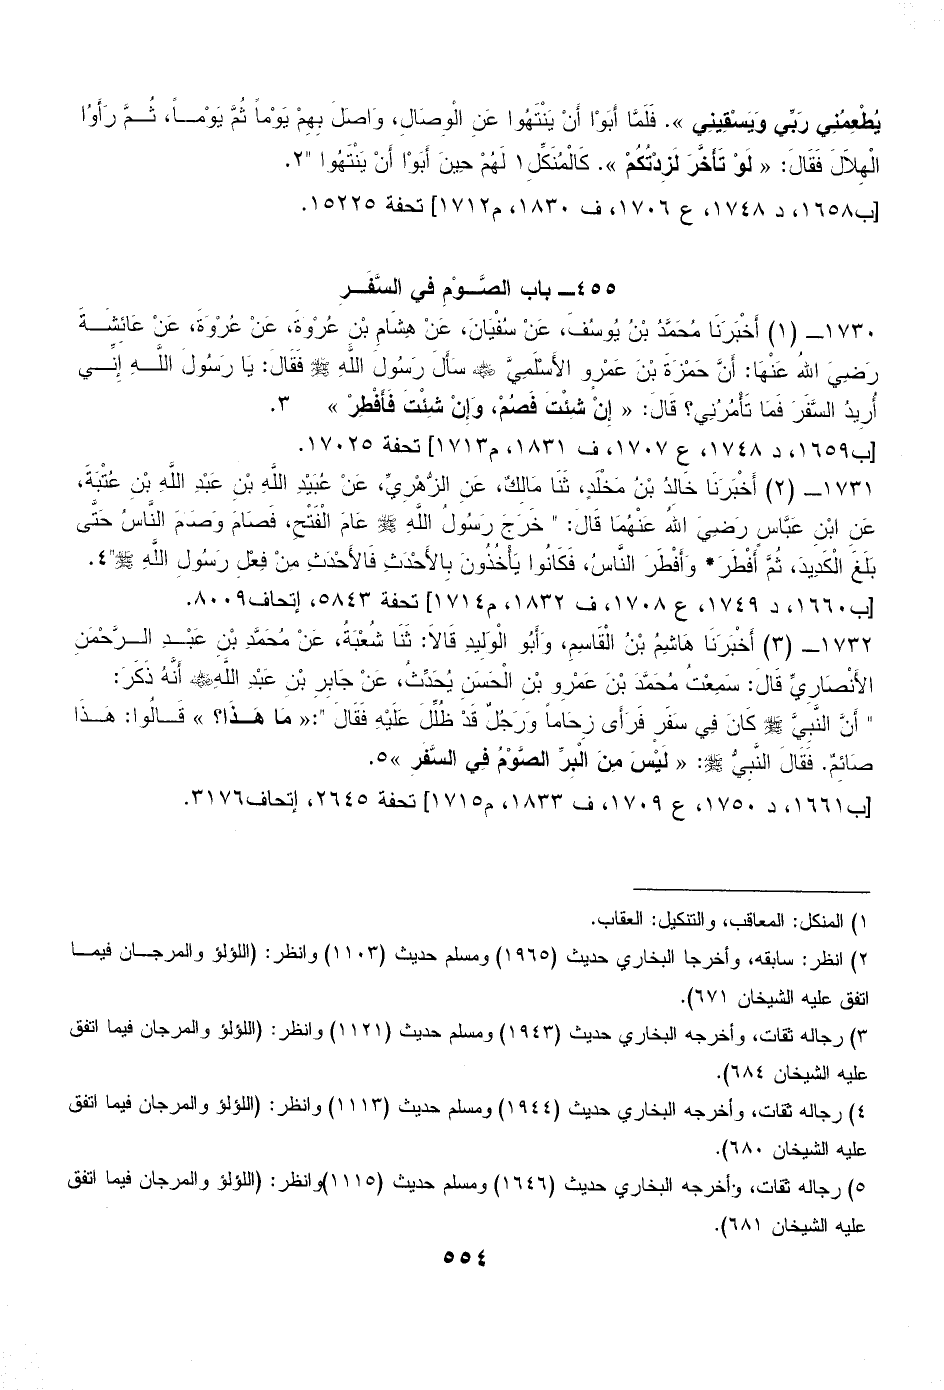 يُطْعِمُنِي رَبِّي وَيَسْقِينِي ». فَلَمَّا أَبَوْا أَنْ يَنْتَهُوا عَنِ الْوِصَالِ، وَاصَلَ بِهِمْ يَوْماً ثُمَّ يَوْمـاً، ثُـمَّ رَأَوُا
الْهِلاَلَ فَقَالَ: « لَوْ تَأَخَّرَ لَزِدْتُكُمْ ». كَالْمُنَكِّلِ١ لَهُمْ حِينَ أَبَوْا أَنْ يَنْتَهُوا "٢.
[ب١٦٥٨، د ١٧٤٨، ع ١٧٠٦، ف ١٨٣٠، م١٧١٢] تحفة ١٥٢٢٥.
٤٥٥ــ باب الصَّـوْمِ في السَّفَـرِ
١٧٣٠ــ (١) أَخْبَرَنَا مُحَمَّدُ بْنُ يُوسُفَ، عَنْ سُفْيَانَ، عَنْ هِشَامِ بْنِ عُرْوَةَ، عَنْ عُرْوَةَ، عَنْ عَائِشَـةَ
رَضِيَ اللهُ عَنْهَا: أَنَّ حَمْزَةَ بْنَ عَمْرٍو الأَسْلَمِيَّ ﷺ سَأَلَ رَسُولَ اللَّهِ ﷺ فَقَالَ: يَا رَسُولَ اللَّـهِ إِنِّـي
أُرِيدُ السَّفَرَ فَمَا تَأْمُرُنِي؟ قَالَ: « إِنْ شِئْتَ فَصُمْ، وَإِنْ شِئْتَ فَأَفْطِرْ » ٣.
[ب١٦٥٩، د ١٧٤٨، ع ١٧٠٧، ف ١٨٣١، م١٧١٣] تحفة ١٧٠٢٥.
١٧٣١ــ (٢) أَخْبَرَنَا خَالِدُ بْنُ مَخْلَدٍ، ثَنَا مَالِكٌ، عَنِ الزُّهْرِيِّ، عَنْ عُبَيْدِ اللَّهِ بْنِ عَبْدِ اللَّهِ بْنِ عُتْبَةَ،
عَنِ ابْنِ عَبَّاسٍ رَضِيَ اللهُ عَنْهُمَا قَالَ: " خَرَجَ رَسُولُ اللَّهِ ﷺ عَامَ الْفَتْحِ، فَصَامَ وَصَامَ النَّاسُ حَتَّى
بَلَغَ الْكَدِيدَ، ثُمَّ أَفْطَرَ* وَأَفْطَرَ النَّاسُ، فَكَانُوا يَأْخُذُونَ بِالأَحْدَثِ فَالأَحْدَثِ مِنْ فِعْلِ رَسُولِ اللَّهِ ﷺ"٤.
[ب١٦٦٠، د ١٧٤٩، ع ١٧٠٨، ف ١٨٣٢، م١٧١٤] تحفة ٥٨٤٣، إتحاف٨٠٠٩.
١٧٣٢ــ (٣) أَخْبَرَنَا هَاشِمُ بْنُ الْقَاسِمِ، وَأَبُو الْوَلِيدِ قَالاَ: ثَنَا شُعْبَةُ، عَنْ مُحَمَّدِ بْنِ عَبْـدِ الـرَّحْمَنِ
الأَنْصَارِيِّ قَالَ: سَمِعْتُ مُحَمَّدَ بْنَ عَمْرِو بْنِ الْحَسَنِ يُحَدِّثُ، عَنْ جَابِرِ بْنِ عَبْدِ اللَّهِﷺ أَنَّهُ ذَكَرَ:
" أَنَّ النَّبِيَّ ﷺ كَانَ فِي سَفَرٍ فَرَأَى زِحَاماً وَرَجُلٌ قَدْ ظُلِّلَ عَلَيْهِ فَقَالَ ":« مَا هَـذَا؟ » قَـالُوا: هَـذَا
صَائِمٌ. فَقَالَ النَّبِيُّ ﷺ: « لَيْسَ مِنَ الْبِرِّ الصَّوْمُ فِي السَّفَرِ »٥.
[ب١٦٦١، د ١٧٥٠، ع ١٧٠٩، ف ١٨٣٣، م١٧١٥] تحفة ٢٦٤٥، إتحاف٣١٧٦.
١) المنكل: المعاقب، والتنكيل: العقاب.
٢) انظر: سابقه، وأخرجا البخاري حديث (١٩٦٥) ومسلم حديث (١١٠٣) وانظر: (اللؤلؤ والمرجـان فيمـا
اتفق عليه الشيخان ٦٧١).
٣) رجاله ثقات، وأخرجه البخاري حديث (١٩٤٣) ومسلم حديث (١١٢١) وانظر: (اللؤلؤ والمرجان فيما اتفق
عليه الشيخان ٦٨٤).
٤) رجاله ثقات، وأخرجه البخاري حديث (١٩٤٤) ومسلم حديث (١١١٣) وانظر: (اللؤلؤ والمرجان فيما اتفق
عليه الشيخان ٦٨٠).
٥) رجاله ثقات، وأخرجه البخاري حديث (١٦٤٦) ومسلم حديث (١١١٥)وانظر: (اللؤلؤ والمرجان فيما اتفق
عليه الشيخان ٦٨١).
٥٥٤